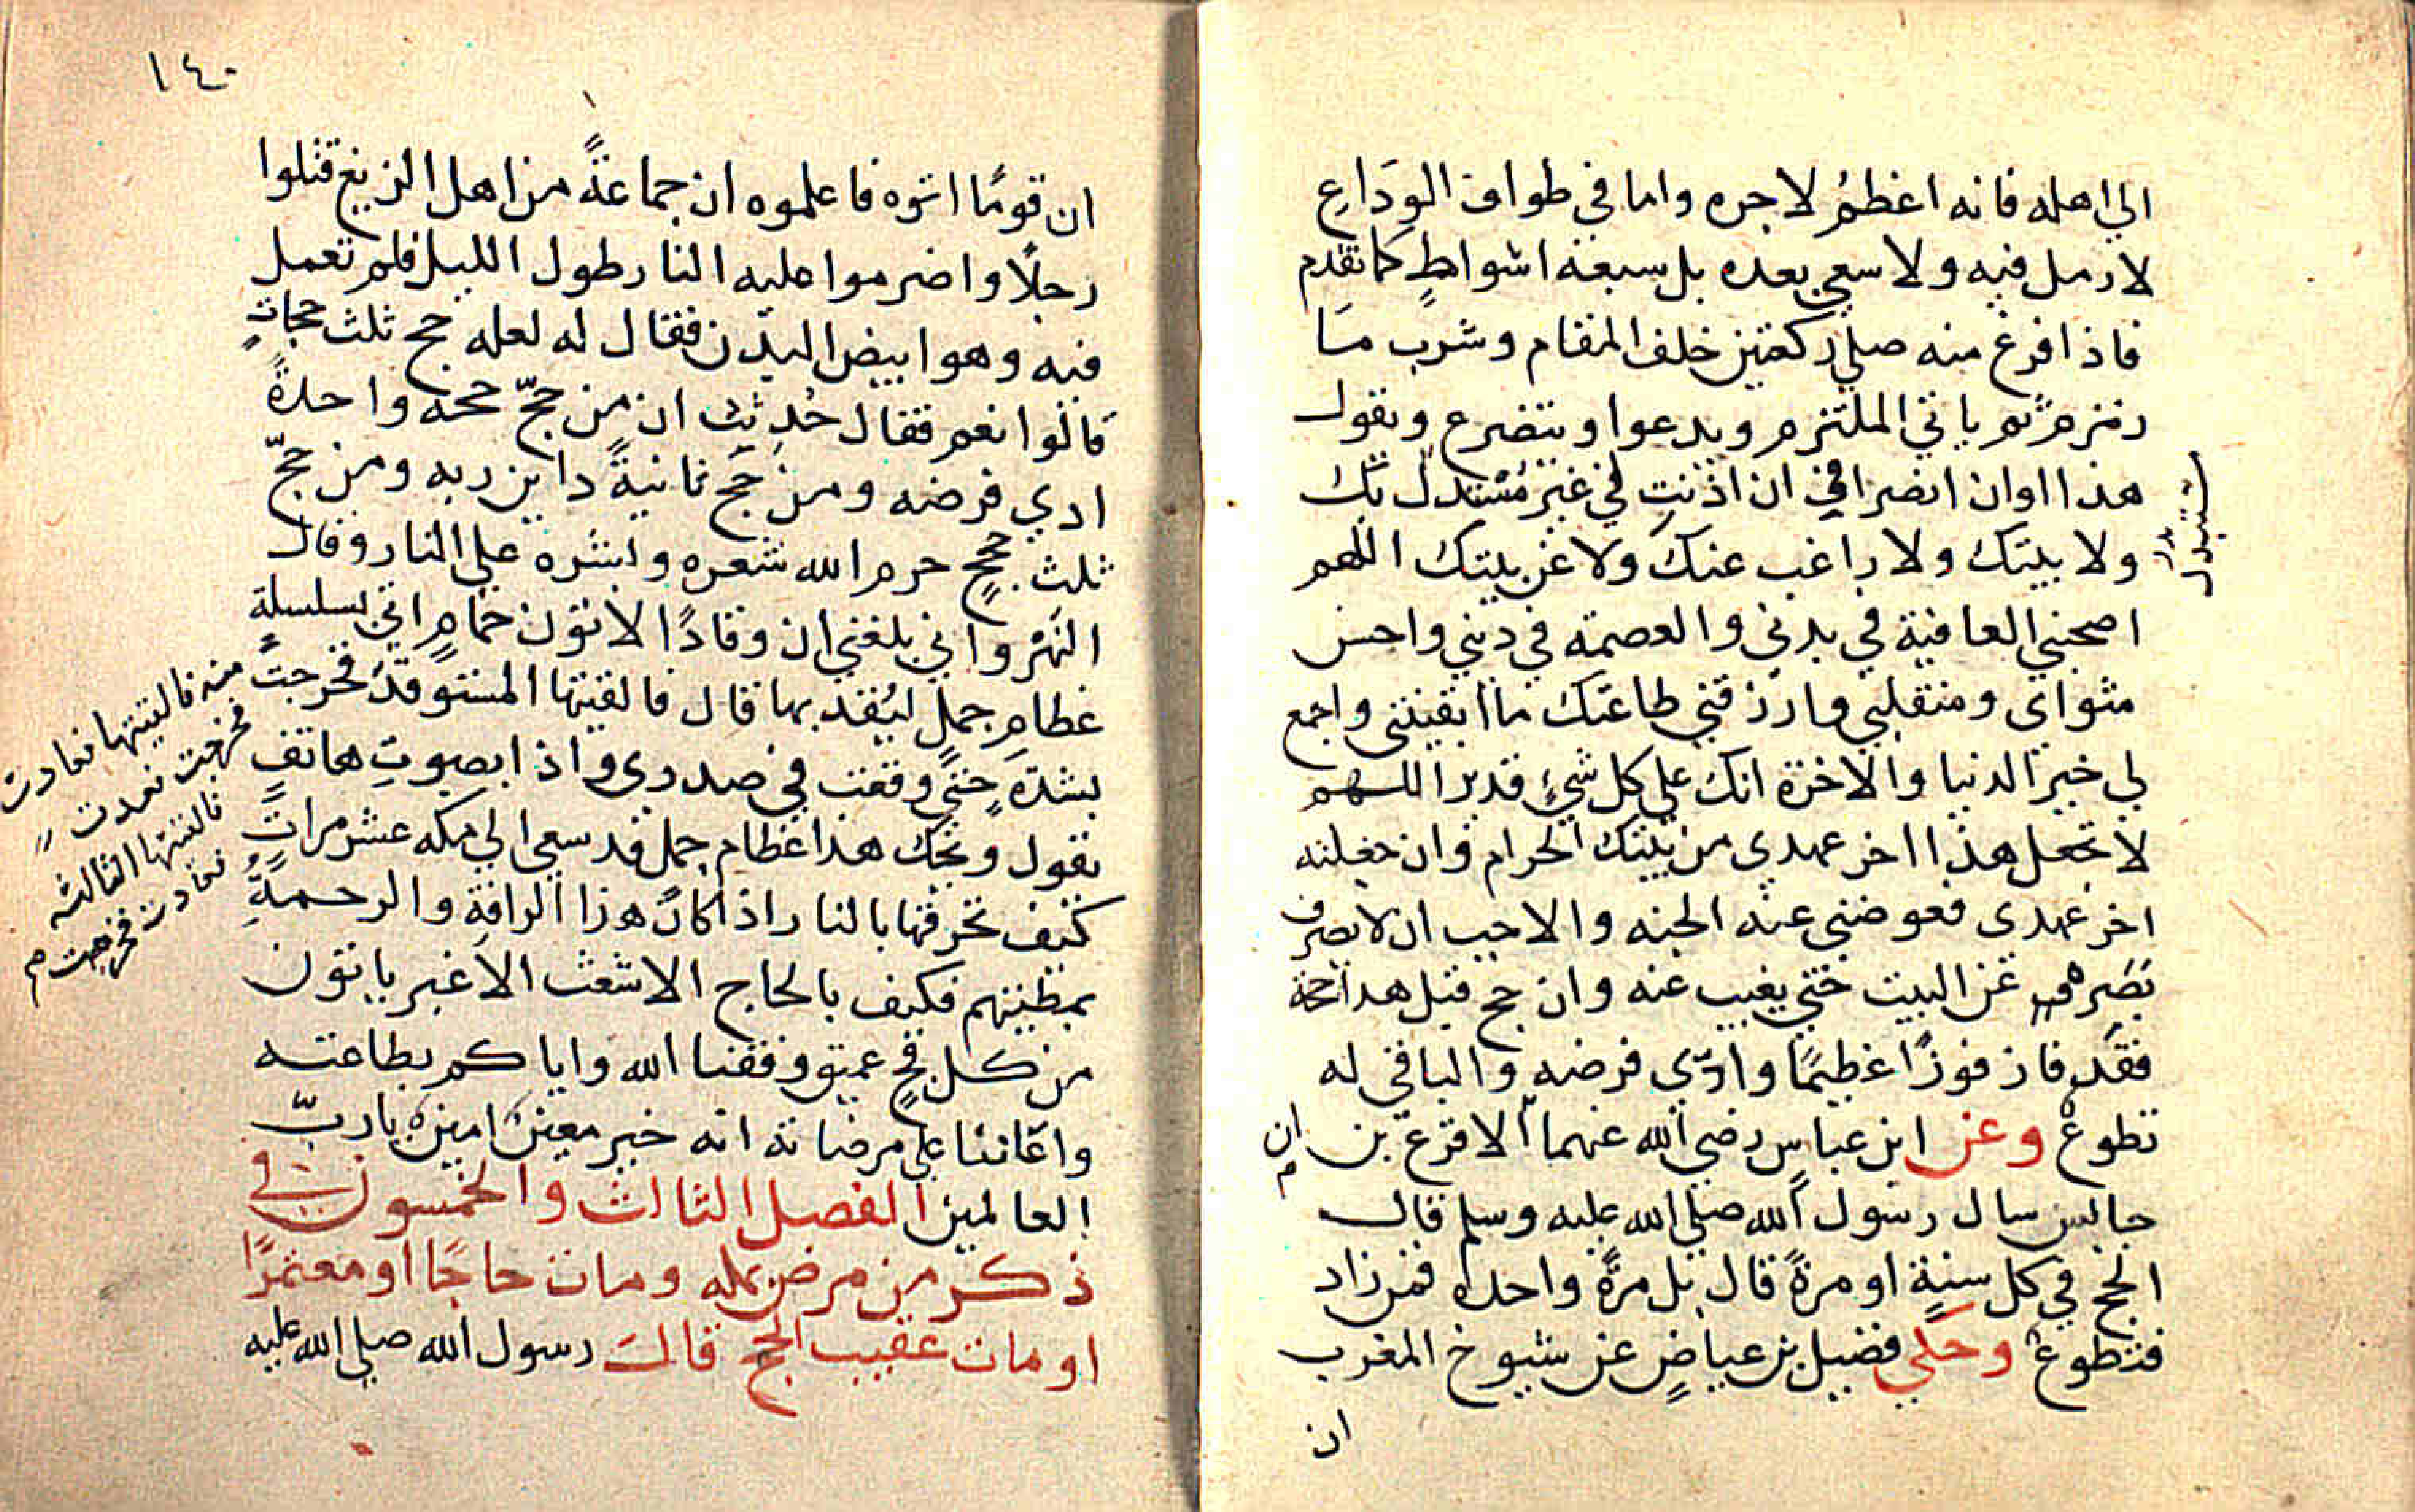 الي اهله فانه اعظمُ لاجره واما في طواف الوَدَاعِ
لا رمل فيه ولا سعي بعده بل سبعة اشواطٍ كما تقدم
فاذا فرغ منه صلي ركعتين خلف المقام وشرب من ما
زمزم ثم ياتي الملتزم ويدعوا ويتضرع ويقول
هذا اوان انصرافي ان اذنت لي غير مُستبدل بك
ولا ببيتك ولا راغب عنك ولا عن بيتك اللهم
اصحبني العافية في بدني والعصمة في ديني واحسن
مثواى ومنقلبي وارزقني طاعتك ما ابقيتني واجمع
لي خير الدنيا والاخرة انك علي كل شيءٍ قدير اللهم
لا تجعل هذا اخر عهدى من بيتك الحرام وان جعلته
اخر عهدى فعوضني عنه الجنه والاحب ان لا يصرف
بَصَره عن البيت حتي يغيب عنه وان حج قبل هذا حجة
فقد فاز فوزًا عظيمًا وادّي فرضه والباقي له
تطوع وعن ابن عباس رضي الله عنهما الاقرع بن
ان
حابس سال رسول الله صلي الله عليه وسلم قال
الحج في كل سنةٍ او مرةً قال بل مرةً واحدة فمن زاد
فتطوع وحكي فضيل بن عياضٍ عن شيوخ المغرب
ان
مستبدل
بدل
١٤٠
ان قومًا اتوه فاعلموه ان جماعةً من اهل الزيغ قتلوا
رجلًا واضرموا عليه النار طول الليل فلم تعمل
فيه وهو ابيض البدن فقال له لعله حج ثلث حجاتٍ
قالوا نعم فقال حُدِّثت ان من حجّ حجة واحدةً
ادي فرضه ومن حج ثانيةً داين ربه ومن حجّ
ثلث حججٍ حرم الله شعره وبشره علي النار وقال
النمر واني بلغني ان وقادًا لاتون حمامٍ اتي بسلسلةٍ
عظامِ جمل ليُقذ بها قال فالقيتها المستوقد فخرجت
بشدّةٍ حتي وقفت في صدرى واذا بصوتِ هاتفٍ
يقول ويحك هذا عظام جمل قد سعي الي مكه عشر مراتٍ
كيف تحرقها بالنار اذا كان هذا الرافةِ والرحمةِ
بمطيتهم فكيف بالحاج الاشعث الاغبر ياتون
من كل فجٍ عميق وفقنا الله واياكم بطاعته
واعاننا علي مرضاته انه خير معين امين يا ربّ
العالمين الفصل الثالث والخمسون في
ذكر من مرض بمكه ومات حاجًا او معتمرًا
او مات عقيب الحج قالَ رسول الله صلي الله عليه
منه فالقيتها فعادت
فخرجت فعدت
فالقيتها الثالثه
فعادت فخرجت م